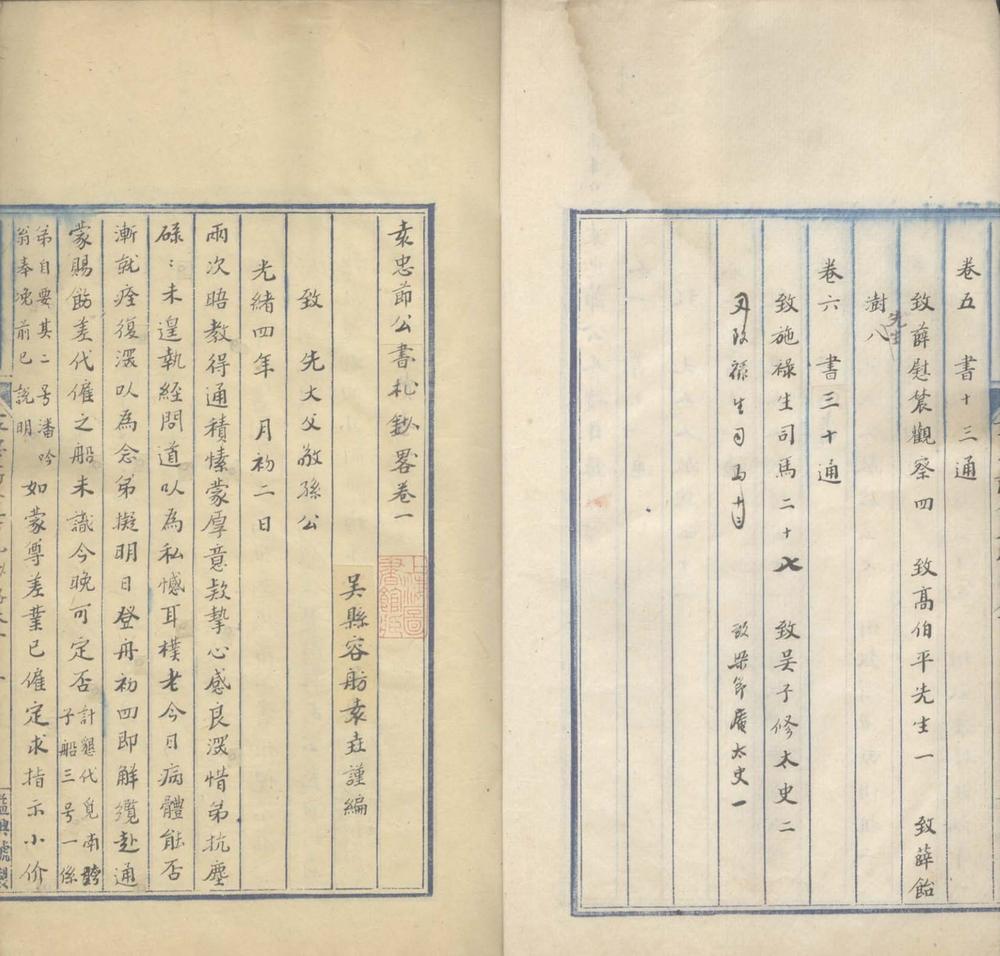 卷五　書十三通
致薛慰農觀察四　致高伯平先生一　致薛飴
澍八
先生
卷六　書三十通
致施祿生司馬二十七　致吴子修太史二
又致祿生司馬十三　致梁節庵太史一
袁忠節公書札鈔畧卷一
吴縣容舫袁垚謹編
上海圖書館藏
致　先大父敬孫公
光緒四年　月初二日
兩次晤教得通積愫蒙厚意欵摯心感良深惜弟抗塵
碌〻未遑執經問道以為私憾耳樸老今日病體能否
漸就痊復深以為念弟擬明日登舟初四即解纜赴通
蒙賜飭差代僱之船未識今晚可定否計懇代覓南
子船三号一係
弟自要其二号潘吟
翁奉挽前已說明如蒙尊差業已僱定求指示小价